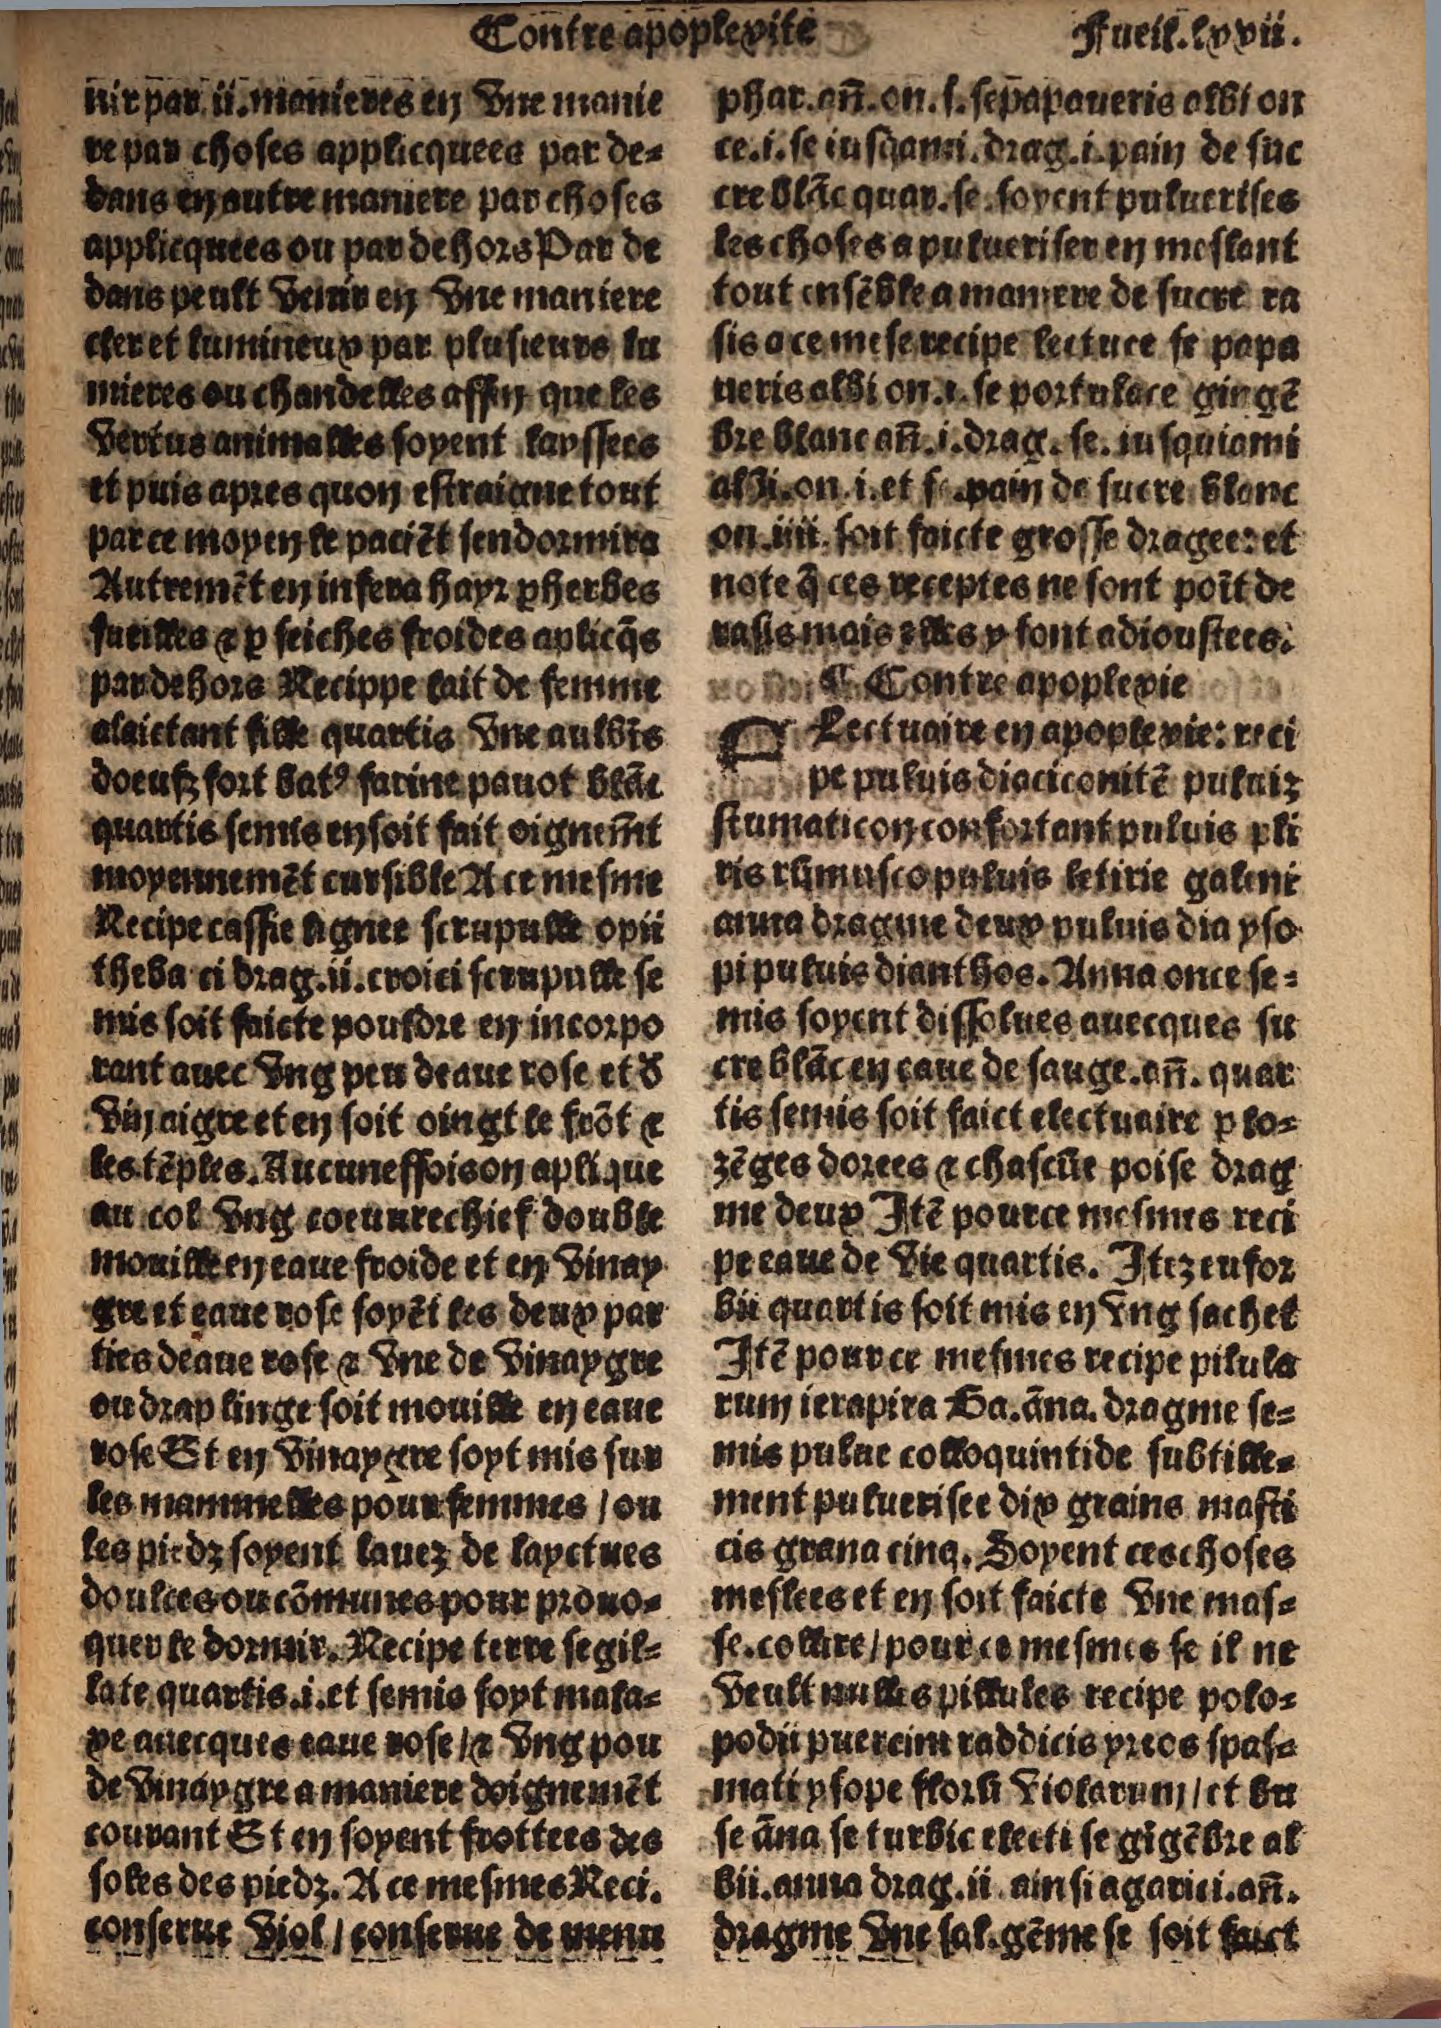 Contre apoplexite
Fueil.lxvii.
nir par ii. manieres en vne manie
re par choses applicquees par de-
dans en autre maniere par choses
applicquees ou par dehors Par de
dans peult venir en vne maniere
cler et lumineux par plusieurs lu
mieres ou chandelles affin que les
vertus animalles soyent layssees
et puis apres quon estraigne tout
par ce moyen le paciẽt sendormira
Autremẽt en infera hayr ꝑ herbes
fueilles & ꝑ seiches froides aplicq̃s
par dehors Recippe lait de femme
alaictant fille quartis vne aulbĩs
doeufz fort batꝰ farine pauot blãc
quartis semis en soit fait oignem̃t
moyennemẽt cursible A ce mesme
Recipe cassie lignee scrupulle opii
theba ci drag.ii.croici scrupulle se
mis soit faicte pouldre en incorpo
rant auec vng peu deaue rose et d̃
vin aigre et en soit oingt le frõt &
les tẽples. Aucuneffois on aplique
au col vng coeuurechief double
mouille en eaue froide et en vinay
gre et eaue rose soyẽt les deux par
ties deaue rose & vne de vinaygre
ou drap linge soit mouille en eaue
rose Et en vinaygre soyt mis sur
les mammelles pour femmes / ou
les piedz soyent lauez de layctues
doulces ou cõmunes pour prouo-
quer le dormir. Recipe terre segil-
late quartis.i.et semis soyt mala-
xe auecques eaue rose / & vng pou
de vinaygre a maniere doignemẽt
courant Et en soyent frottees des
soles des piedz. A ce mesmes Reci.
conserue viol / conserue de menu
phar.añ.on.s.se papaueris albi on
ce.i.se iusq̃ami.drag.i.pain de suc
cre blãc quar.se.soyent puluerises
les choses a pulueriser en meslant
tout ensẽble a maniere de sucre ra
sis a ce mese recipe lectuce se papa
ueris albi on.i.se portulace gingẽ
bre blanc añ.i.drag.se.iusquiami
albi.on.i.et se.pain de sucre blanc
on.iiii.soit faicte grosse dragee: et
note q̃ ces receptes ne sont poĩt de
rasis mais elles y sont adioustees.
¶ Contre apoplexie
ELectuaire en apoplexie: reci
pe puluis diaciconitẽ puluiz
stumaticon confortant puluis pli
ris cũ musco puluis letirie galeni
anna dragme deux puluis dia yso
pi puluis dianthos. Anna once se-
mis soyent dissolues auecques su
cre blãc en eaue de sauge.añ. quar
tis semis soit faict electuaire ꝑ lo-
zẽges dorees & chascũe poise drag
me deux Itẽ pour ce mesmes reci
pe eaue de vie quartis. Itez eufor
bii quartis soit mis en vng sachet
Itẽ pour ce mesmes recipe pilula
rum ierapira Ga.ãna. dragme se-
mis pulue colloquintide subtille-
ment puluerisee dix grains masti
cis grana cinq. Soyent ces choses
meslees et en soit faicte vne mas-
se.collire / pour ce mesmes se il ne
veult nulles pillules recipe polo-
podii puercini raddicis yreos spas-
mati ysope florũ violarum / et bu
se ãna se turbic electi se gĩgẽbre al
bii.anna drag.ii ainsi agarici.añ.
dragme vne sal.gẽme se soit faict